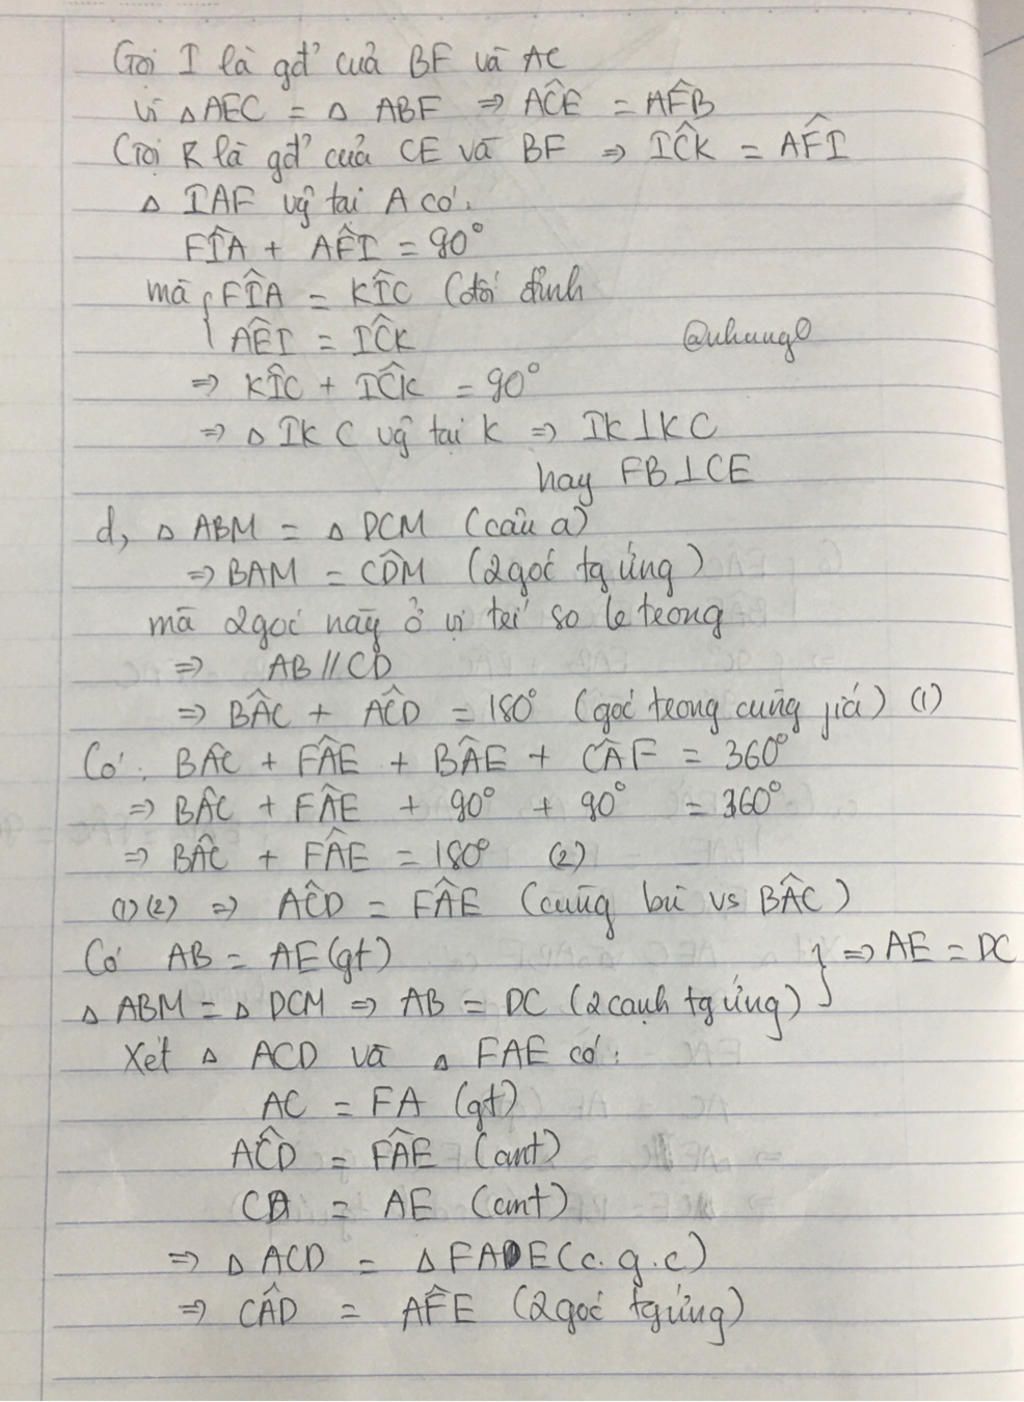 Gọi I là gđ' của BF và AC
Vì △AEC = △ ABF ⇒ AĈE = AF̂B
Gọi K là gđ' của CE và BF ⇒ IĈK = AF̂I
△ IAF vg̑ tại A có:
FÎA + AF̂I = 90°
mà { FÎA = KÎC (đối đỉnh
AF̂I = IĈK
@nhung0
⇒ KÎC + IĈK = 90°
⇒ △ IKC vg̑ tại K ⇒ IK⊥KC
hay FB⊥CE
d, △ ABM = △ DCM (câu a)
⇒ BAM = CD̂M (2góc tg ứng)
mà 2góc này ở vị trí so le trong
⇒ AB//CD
⇒ BÂC + AĈD = 180° (góc trong cùng phía) (1)
Có: BÂC + FÂE + BÂE + CÂF = 360°
⇒ BÂC + FÂE + 90° + 90° = 360°
⇒ BÂC + FÂE = 180° (2)
(1)(2) ⇒ AĈD = FÂE (cùng bù vs BÂC)
Có AB = AE(gt)
△ ABM = △ DCM ⇒ AB = DC (2cạnh tg ứng) } ⇒ AE = DC
Xét △ ACD và △ FAE có:
AC = FA (gt)
AĈD = FÂE (cmt)
CD = AE (cmt)
⇒ △ ACD = △ FAE (c.g.c)
⇒ CÂD = AF̂E (2góc tg ứng)